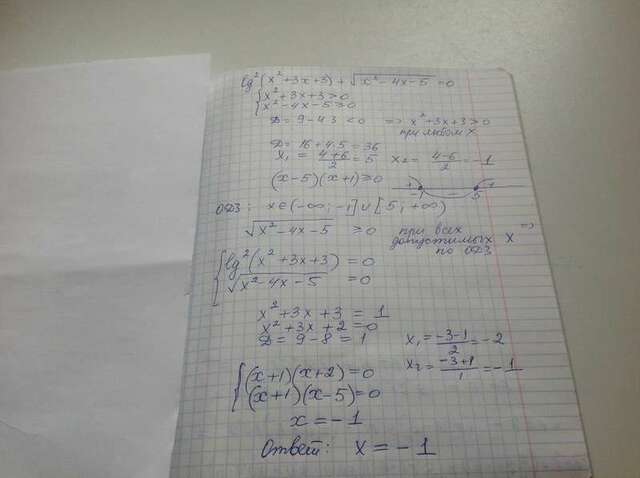 lg²(x²+3x+3) + √x²-4x-5 = 0
{ x²+3x+3>0
x²-4x-5≥0
D = 9-4·3 <0 ⇒ x²+3x+3>0
при любом x
D = 16+4·5 = 36
x₁ = 4+6/2 = 5 x₂ = 4-6/2 = -1
(x-5)(x+1)≥0
+ -1 - 5 +
ОДЗ: x∈(-∞; -1]∪[5; +∞)
√x²-4x-5 ≥0 при всех допустимых x по ОДЗ ⇒
{ lg²(x²+3x+3) = 0
√x²-4x-5 = 0
x²+3x+3 = 1
x²+3x+2 = 0
D = 9-8 = 1
x₁ = -3-1/2 = -2
x₂ = -3+1/1 = -1
{ (x+1)(x+2)=0
(x+1)(x-5)=0
x = -1
Ответ: x = -1